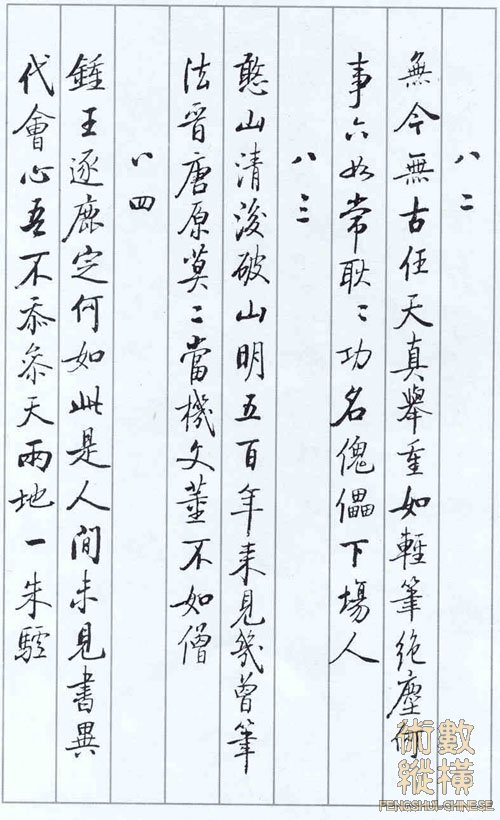 八二
無今無古任天真舉重如輕筆絕塵何
事六如常耿〻功名傀儡下場人
八三
憨山清後破山明五百年來見幾曾筆
法晉唐原莫二當機文董不如僧
八四
鍾王逐鹿定何如此是人間未見書異
代會心吾不忝參天兩地一朱驢
術數
縱橫
FENGSHUI-CHINESE